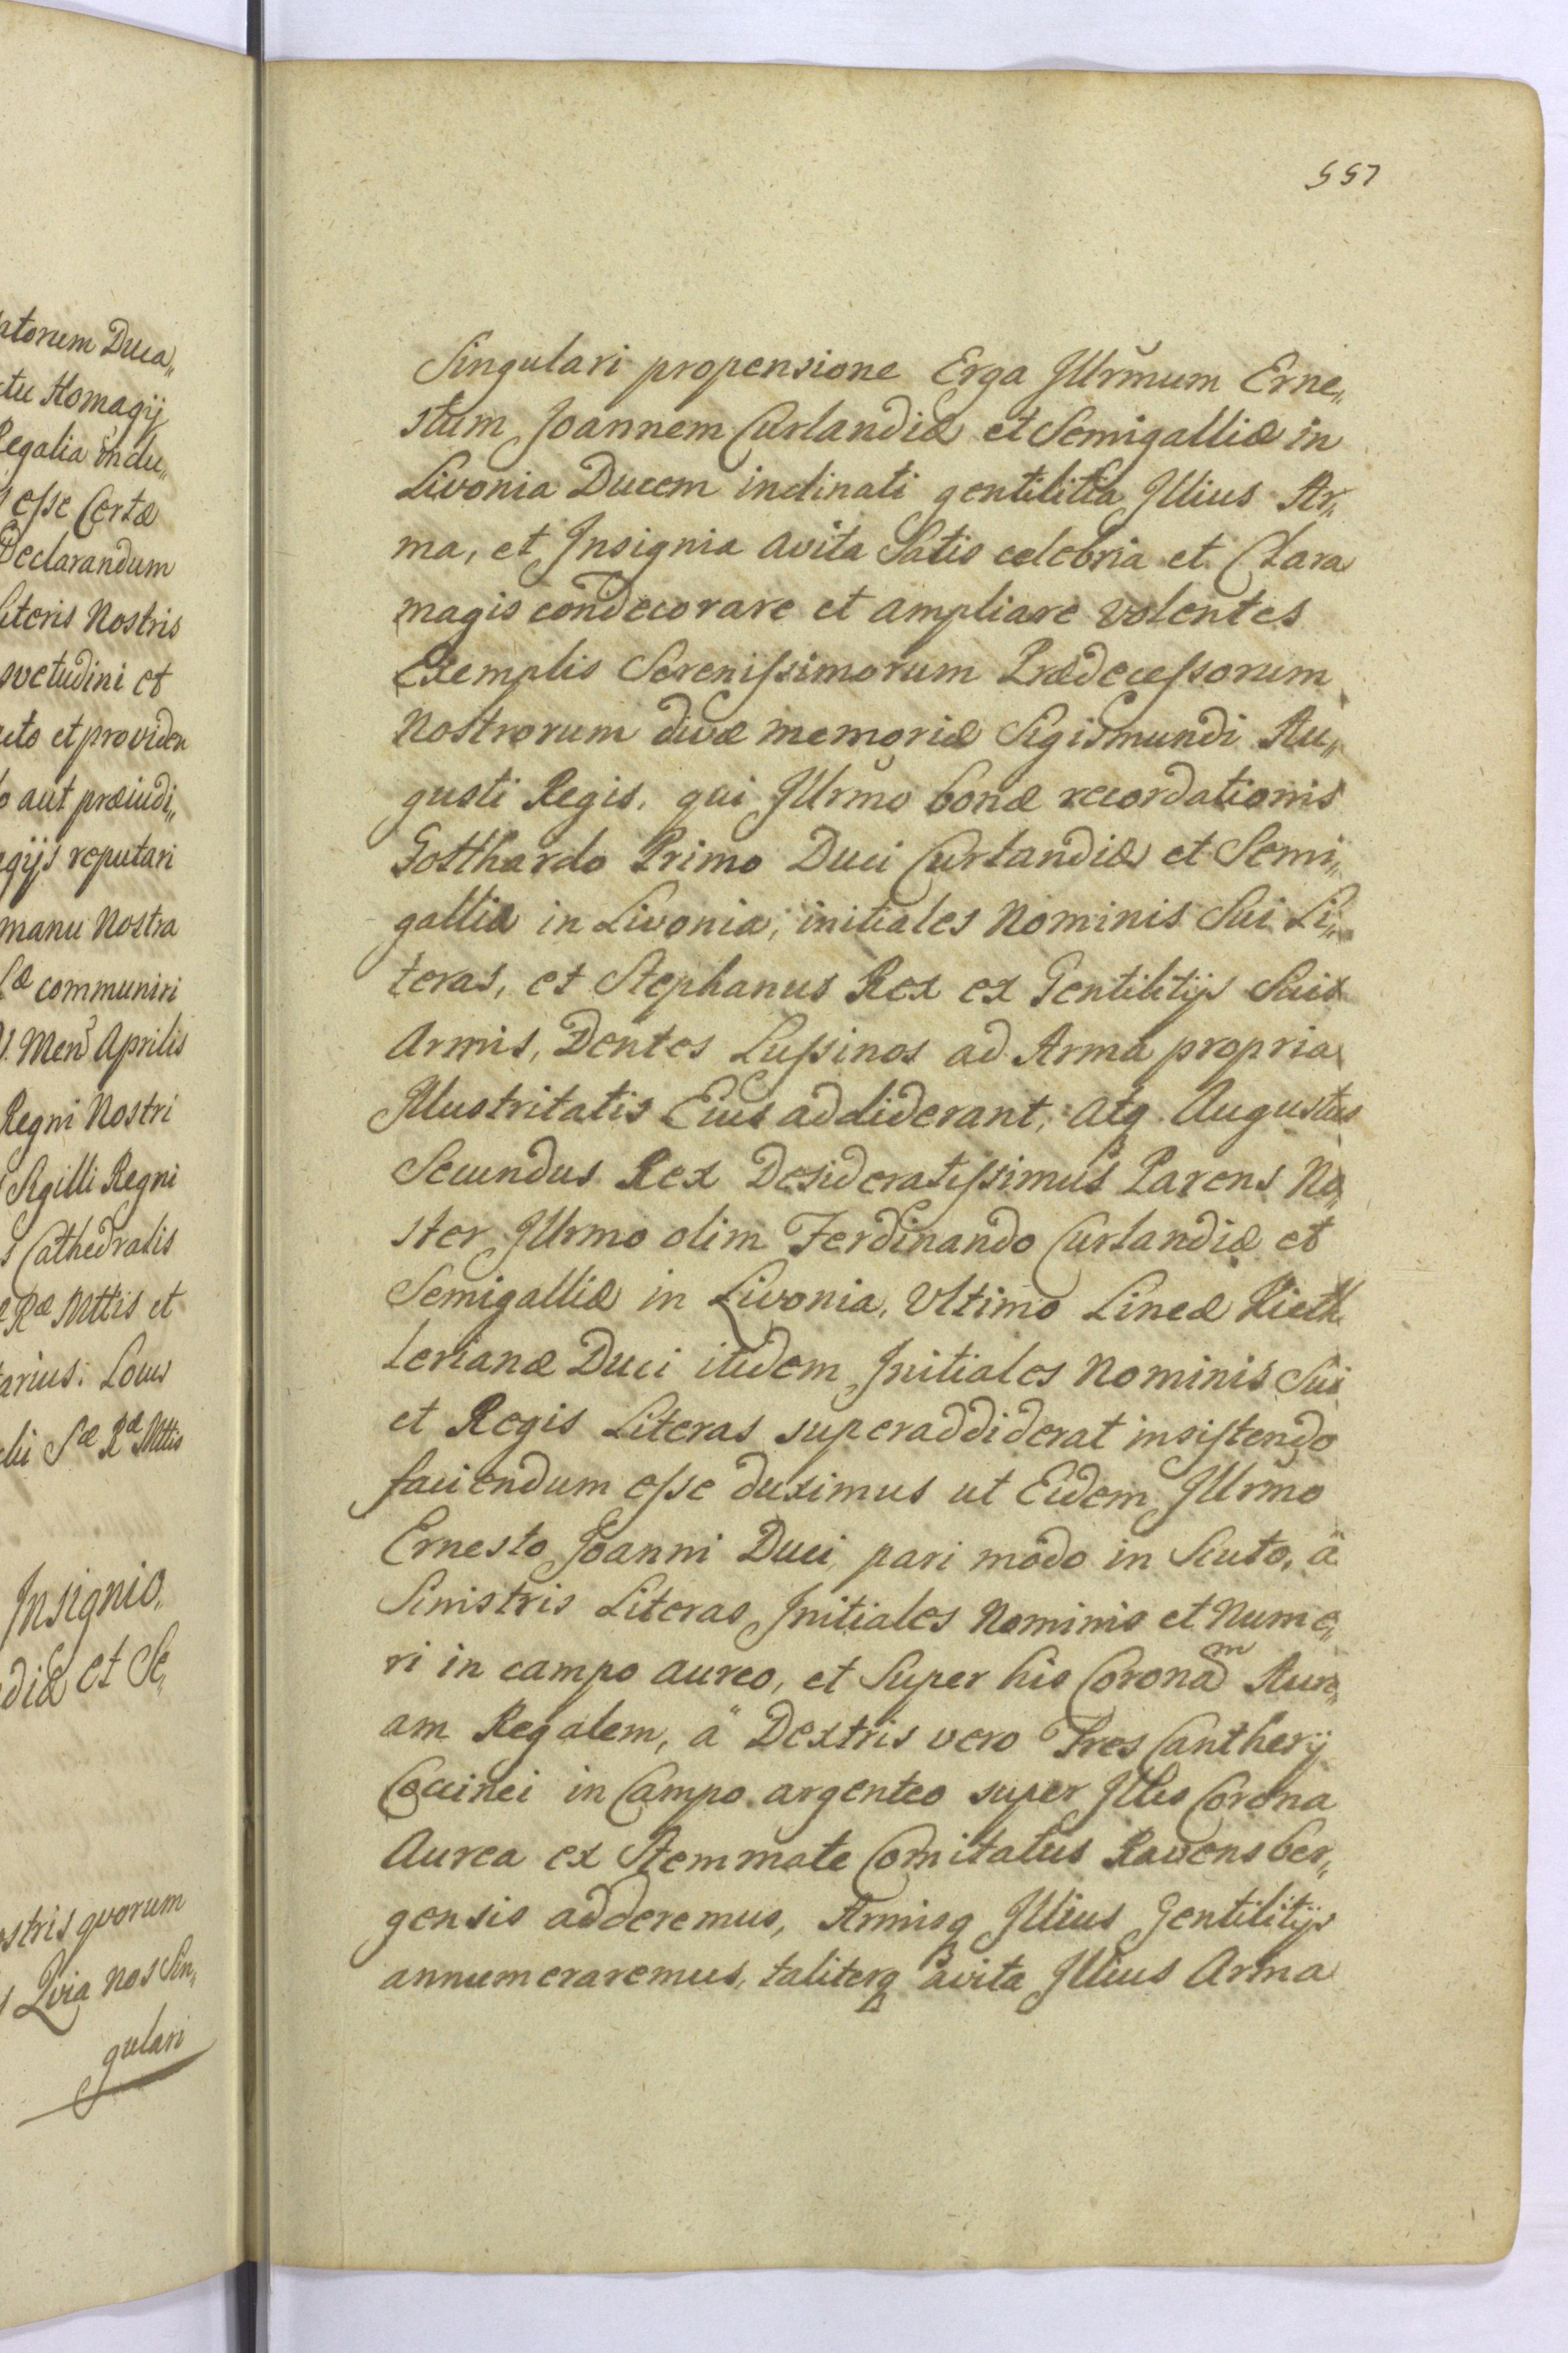 atorum Duca„
tu Homagij
Regalia indu„
esse Certæ
Declarandum
Literis Nostris
svetudini et
uto et providen
o aut præiudi„
gijs reputari
manu Nostra
communiri
Mens Aprilis
Regni Nostri
Sigilli Regni
s Cathedralis
Ræ Mttis et
tarius: Locus
Sæ Ræ Mttis
Insignio„
diæ et Se„
ostris quorum
Quia nos Sin„
gulari
557
Singulari propensione Erga Jllrm̃um Erne„
stum Joannem Curlandiæ et Semigalliæ in
Livonia Ducem inclinati gentilitia Jllius Ar„
ma, et Jnsignia avita Satis celebria et Clara
magis condecorare et ampliare volentes
Exemplis Serenissimorum Prædecessorum
Nostrorum divæ memoriæ Sigismundi Au„
gusti Regis, qui Jllrm̃o bonæ recordationis
Gotthardo Primo Duci Curlandiæ et Semi„
galliæ in Livonia, initiales Nominis Sui Li„
teras, et Stephanus Rex ex Gentilitijs Suis
Armis, Dentes Lupinos ad Arma propria
Jllustritatis Eius addiderant, atq Augustus
Secundus Rex Desideratissimus Parens No„
ster Jllrmo olim Ferdinando Curlandiæ et
Semigalliæ in Livonia, Ultimo Lineæ Kieth„
lerianæ Duci itidem Jnitiales Nominis Sui
et Regis Literas superaddiderat insistendo
faciendum esse duximus ut Eidem Jllrmo
Ernesto Joanni Duci pari modo in Scuto, à
Sinistris Literas Jnitiales Nominis et Nume„
ri in campo aureo, et Super his Coronam Aure„
am Regalem, à Dextris vero Tres Cantherij
Coccinei in Campo argenteo super Jlles Corona
Aurea ex Stemmate Comitatus Ravensber„
gensis adderemus, Armisq Jllius Gentilitijs
annumeraremus, taliterq avita Jllius Arma